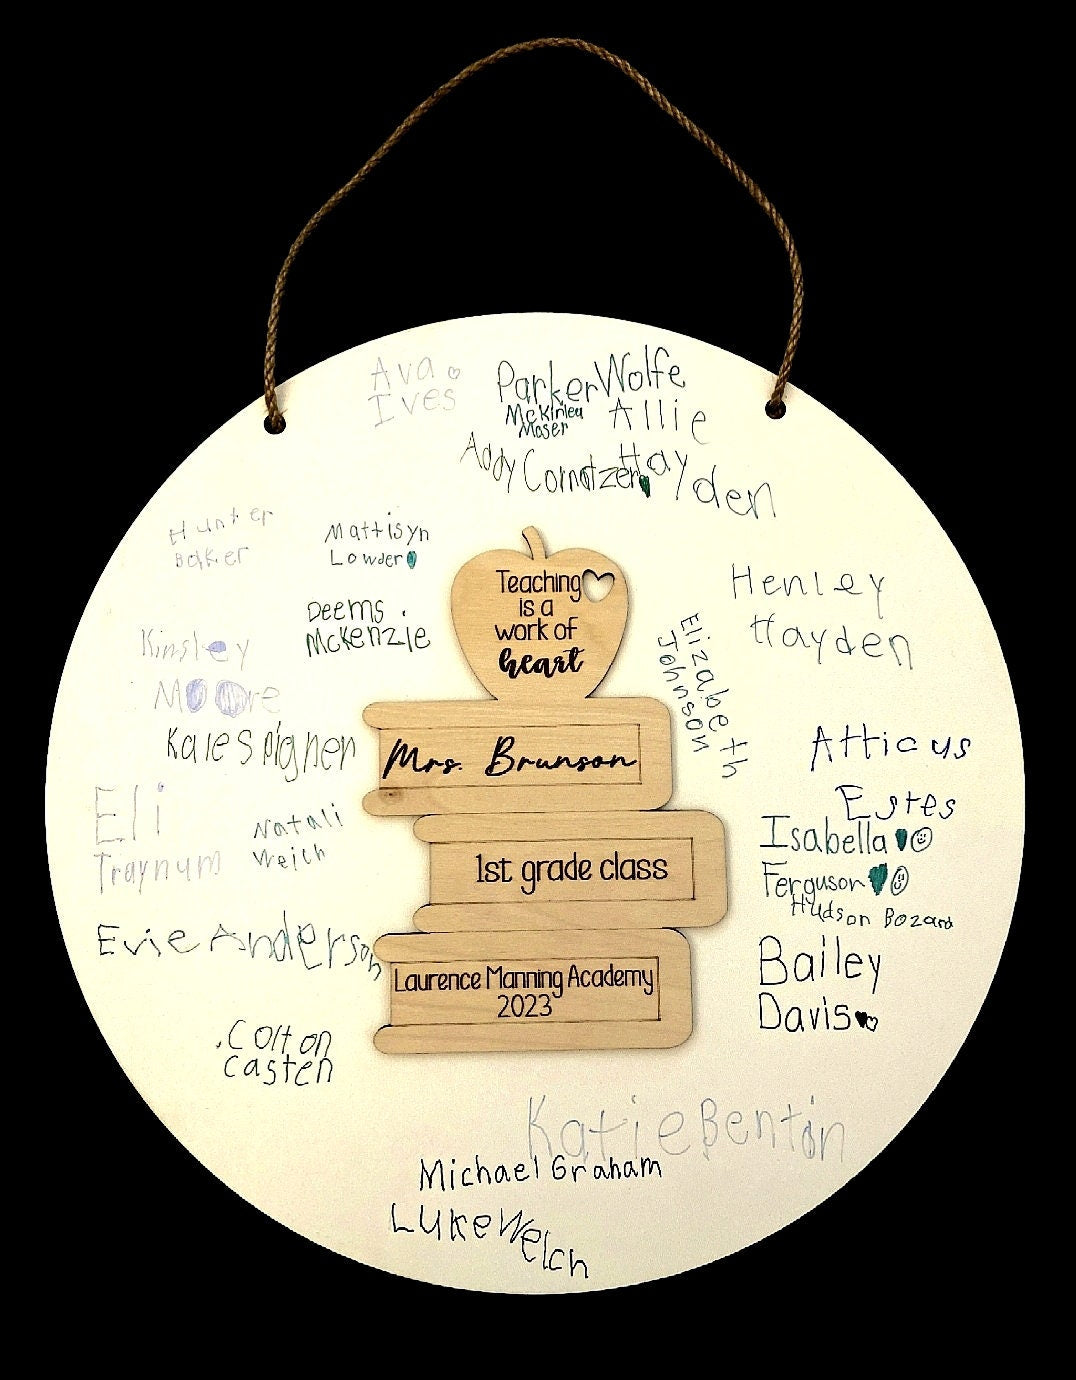 Ava
Ives
Parker Wolfe
McKinley
Moser
Allie
Hayden
Addy Cornatzer
Hunter
Baker
Mattisyn
Lowder
Teaching
is a
work of
heart
Henley
Hayden
Deems
McKenzie
Kinsley
Moore
Elizabeth
Johnson
Kale Spigner
Mrs. Brunson
Atticus
Estes
Eli
Traynum
Natali
Welch
Isabella
Ferguson
1st grade class
Hudson Bozard
Evie Anderson
Bailey
Davis
Laurence Manning Academy
2023
Colton
Casten
Katie Benton
Michael Graham
Luke Welch